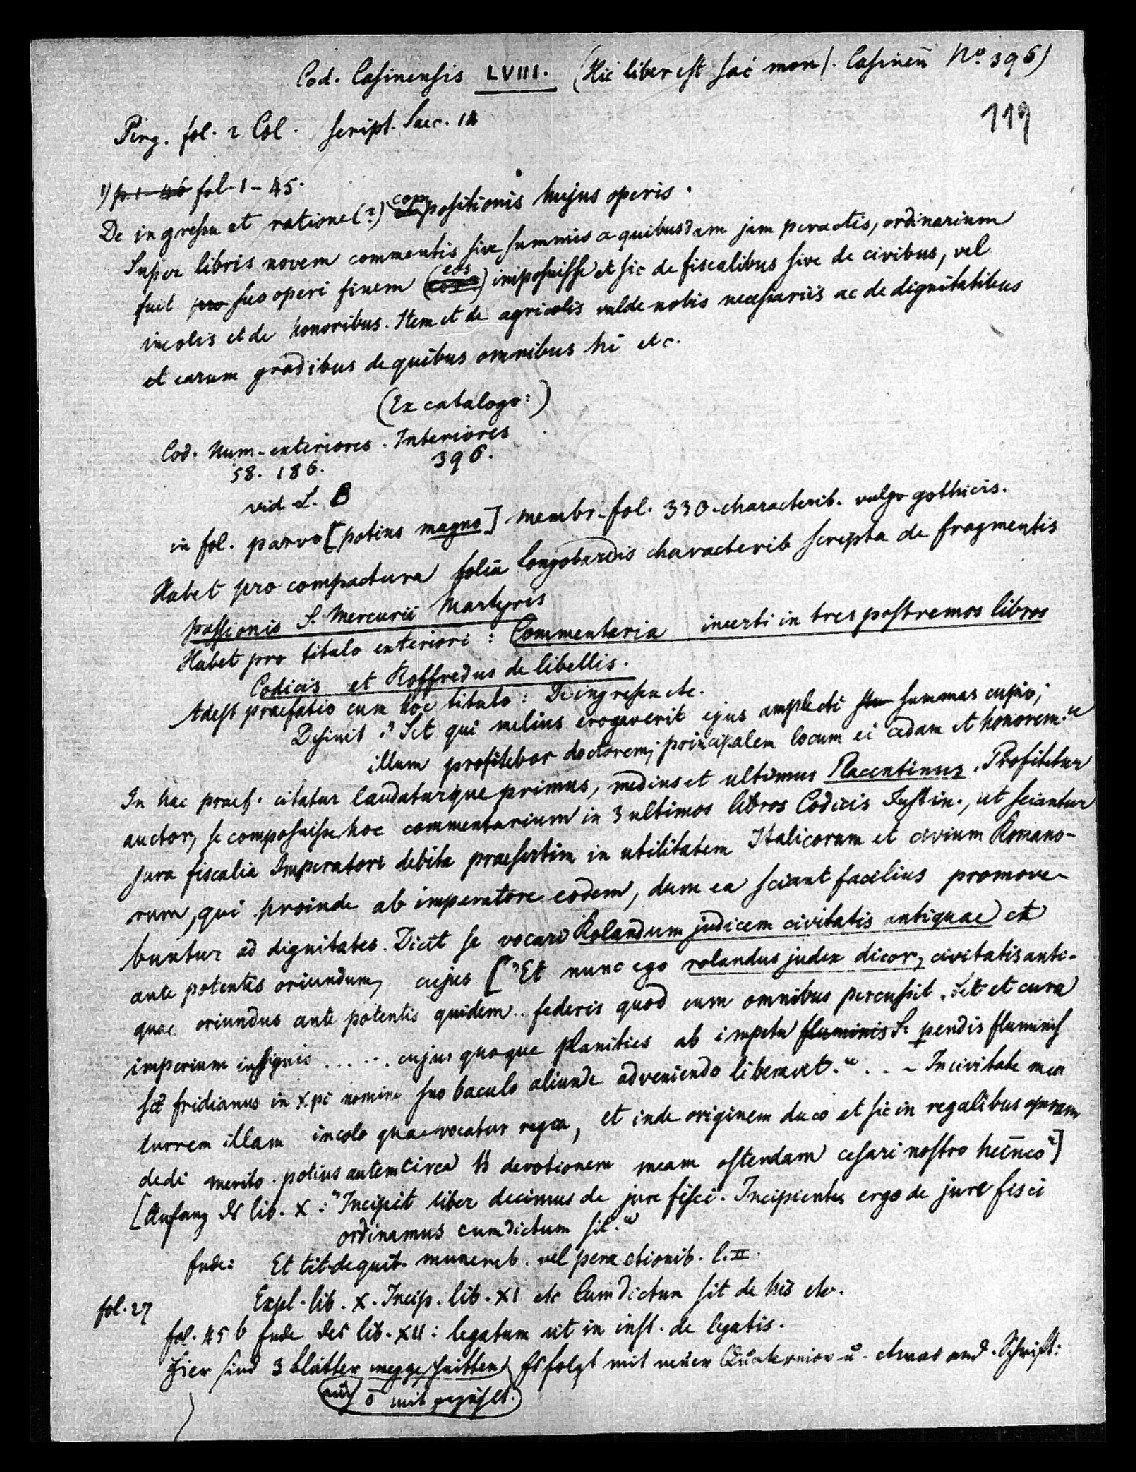 Cod. Casinensis LVIII. (Hic liber est sāc mon/. Casinen̄ No. 396)
119
Perg. fol. 2 Col. script. Saec. 14
1) p. 1-46 fol. 1-45.
De ingressu et ratione (?) compositionis hujus operis.
Super libris novem commentis sive summis a quibusdam jam peractis, ordinarium
fuit pro suo operi finem (eos) imposuisse et sic de fiscalibus sive de civibus, vel
incolis et de honoribus. Item et de agricolis valde nobis necessariis ac de dignitatibus
et earum gradibus de quibus omnibus hi etc.
(Ex catalogo:)
Cod. Num. exteriores. Interiores
58. 186. 396.
vid L. B
in fol. parvo [potius magno] membr. fol. 330. characterib. vulgo gothicis.
Habet pro compactura folia longobardis characterib scripta de fragmentis
passionis S. Mercurii Martyris
Habet pro titulo exteriori: Commentaria incerti in tres postremos libros
Codicis et Roffredus de libellis.
Adest praefatio cum hoc titulo: De ingressu etc.
Desinit: "Set qui melius erogaverit ejus amplecti summas cupio;
illum profitebor doctorem, principalem locum ei cedam et honorem."
In hac praef. citatur laudaturque primus, medius et ultimus Placentinus. Profitetur
auctor, se composuisse hoc commentarium in 3 ultimos libros Codicis Justin., ut sciantur
jura fiscalia Imperatori debita praesertim in utilitatem Italicorum et civium Romano-
rum, qui proinde ab imperatore eodem, dum ea sciant facilius promove-
buntur ad dignitates. Dicit se vocari Rolandum judicem civitatis antiquae et
ante potentis oriundum, cujus ["Et nunc ego rolandus judex dicor, civitatis anti-
quae oriundus ante potentis quidem .. federis quod cum omnibus percussit. Set et cura
imperium insignis ... .. cujus quoque planities ab impetu fluminis S. pendis fluminis
scs fridianus in xpi nomine suo baculo aliunde adveniendo liberavit." . . - In civitate mea
turrem illam incolo quae vocatur regia, et inde originem duco et sic in regalibus operam
dedi merito. potius autem circa devotionem meam ostendam cesari nostro heinrico"]
[Anfang des lib. X: "Incipit liber decimus de jure fisci. Incipientes ergo de jure fisci
ordinamus cum dictum sit."
Ende: Et tit. de quib. munerib. vel peractionib. l. II.
fol. 27 Expl. lib. X. Incip. lib. XI etc Cum dictum sit de his etc.
fol. 45 b Ende des lib. XII: legatum ut in inst. de legatis.
Hier sind 3 Blätter weggeschnitten Es folgt mit neuer Quaternion u. etwas and. Schrift:
mit gezählt.